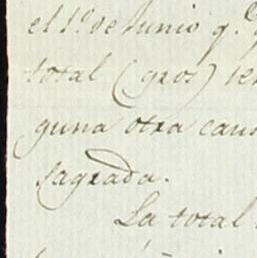 el 1º de Junio q.e
total (gros)
guna otra caus
sagrada.
La total